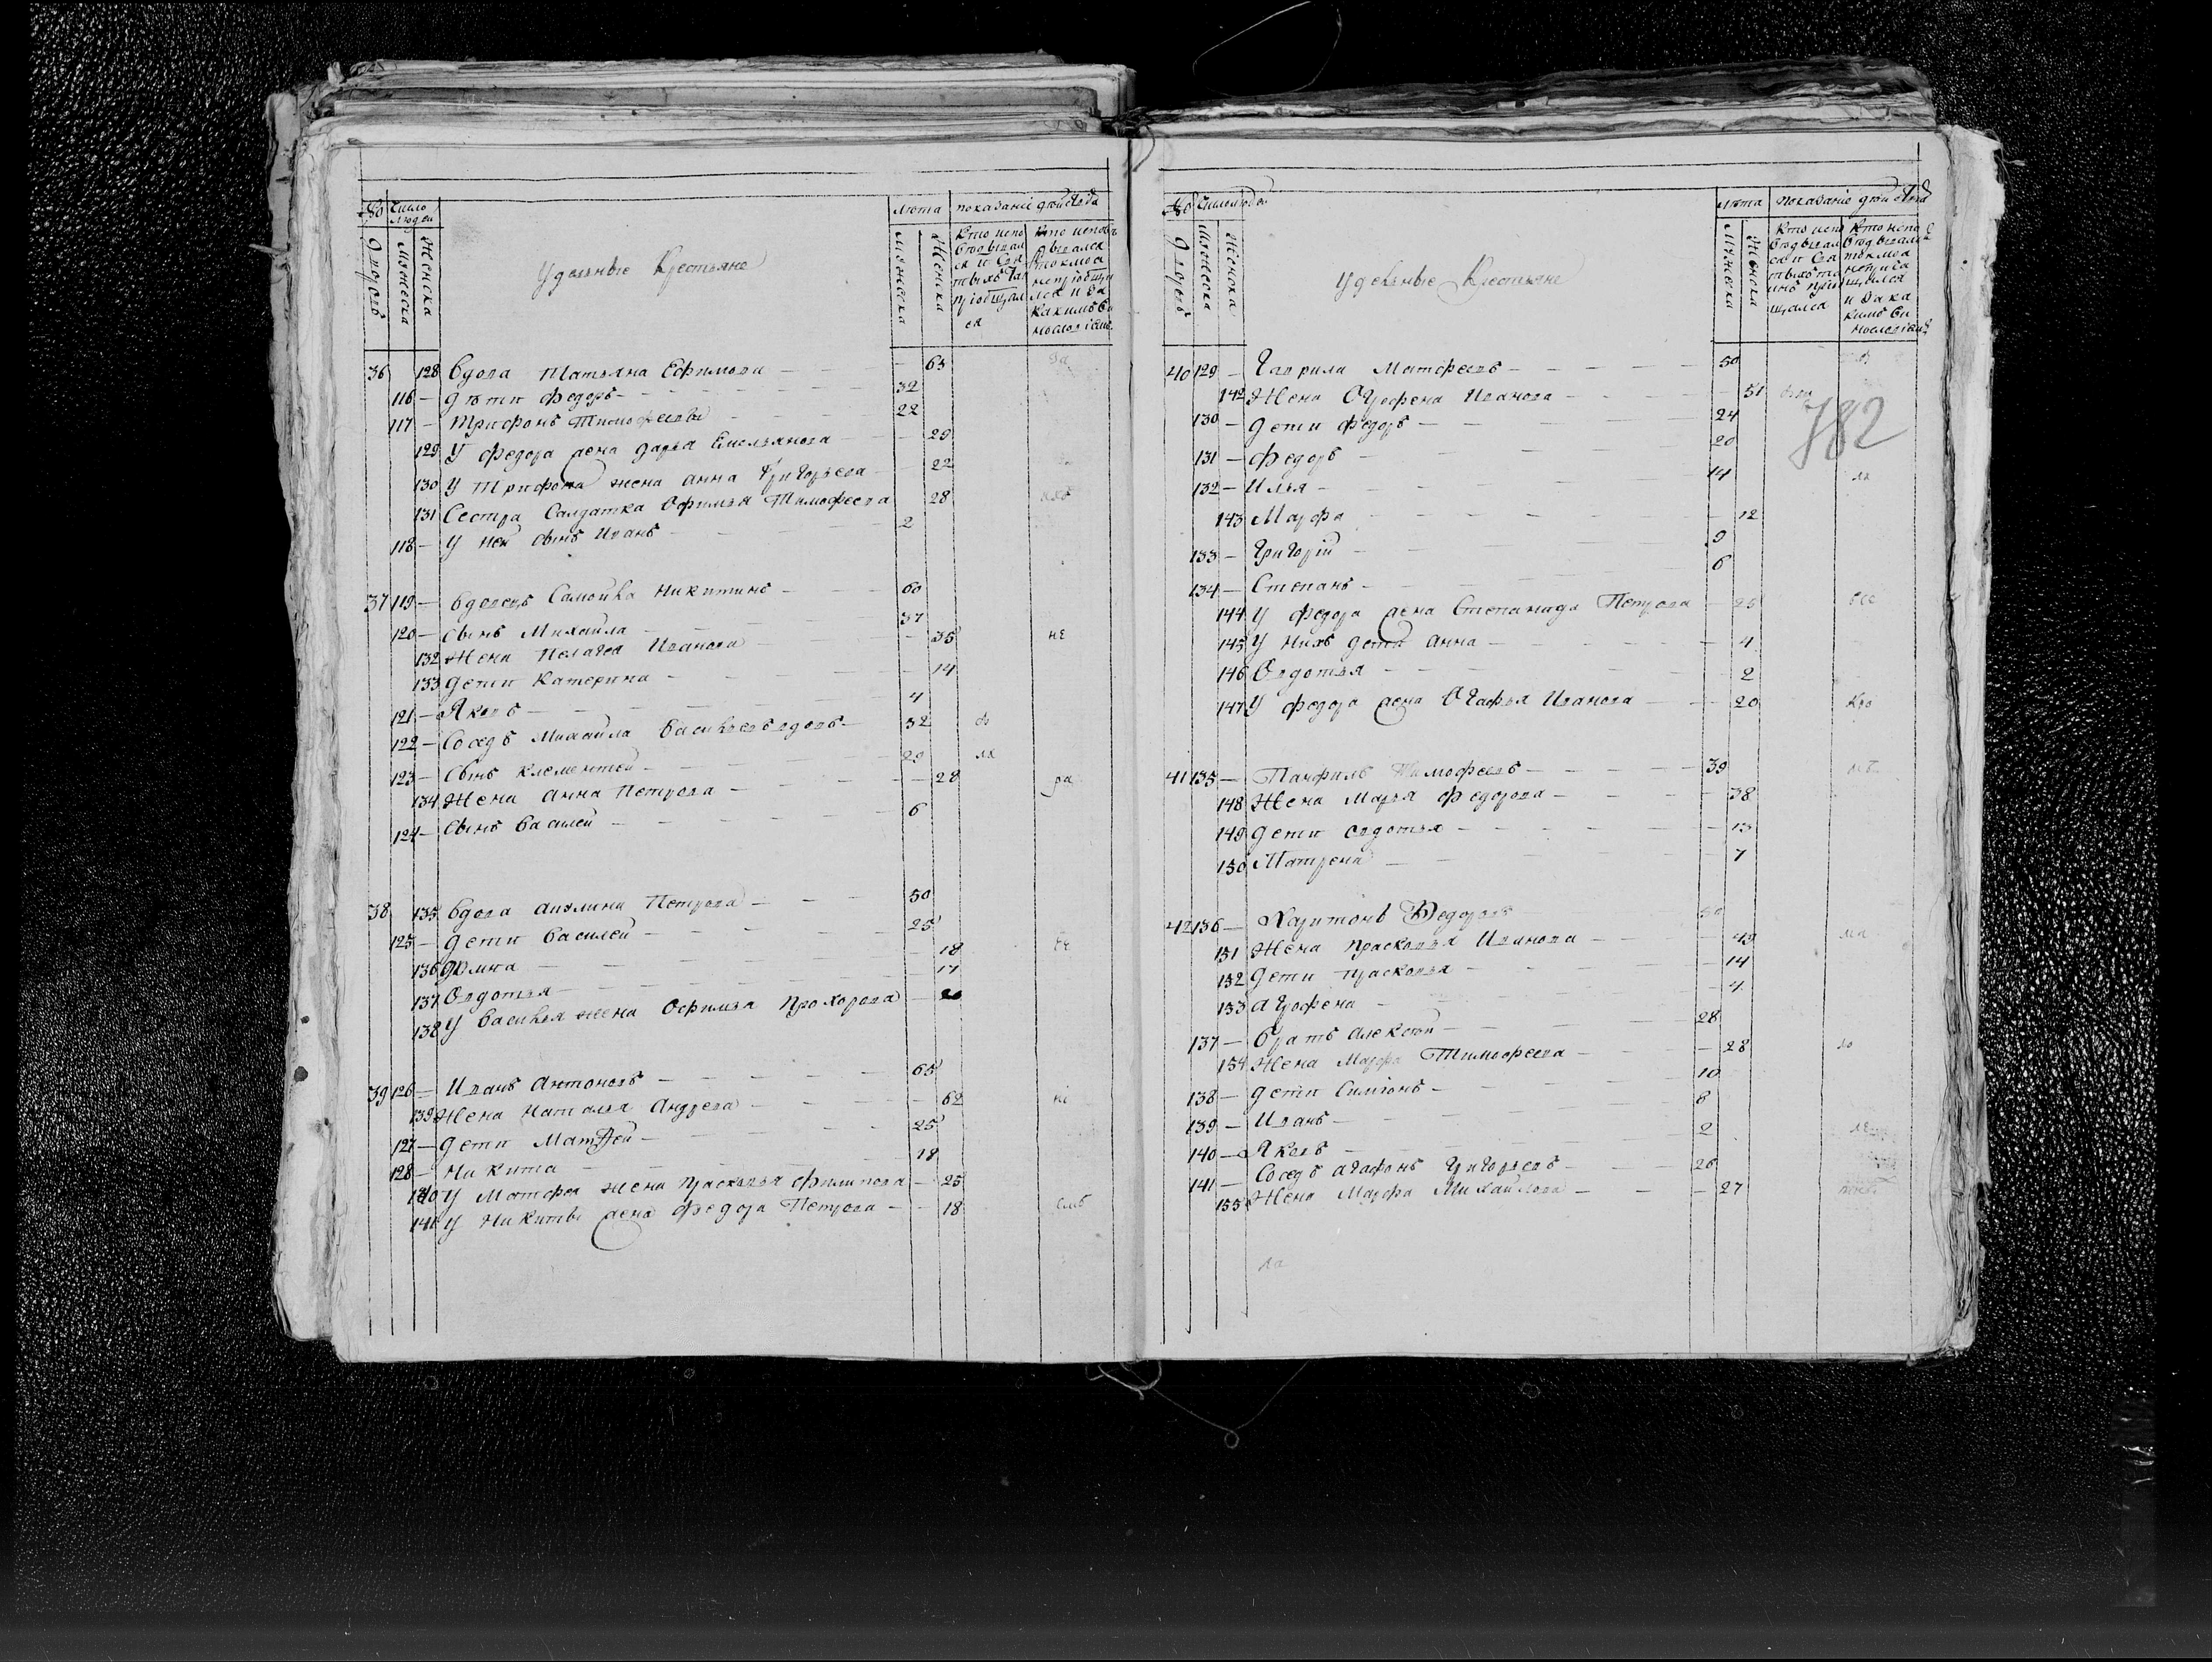 № Число людей Лѣта показаніе дѣйства
дворовъ Мужеска Женска Удельные Крестьяне Мужеска Женска
36 128 Вдова Татьяна Ефимова 63
116 дѣти Федоръ 32
117 Трифонъ Тимофеевы 22
129 У Федора жена Дарья Емельянова 29
130 У Трифона жена Анна Григорьева 22
131 Сестра Салдатка Офимья Тимофеева 28
118 У ней сынъ Иванъ 2
37 119 Вдовецъ Самойла Никитинъ 60
120 Сынъ Михайла 37
132 Жена Пелагея Иванова 35 не
133 дети Катерина 14
121 Яковъ 4
122 Соседъ Михайла Васильевъ вдовъ 32
123 Сынъ Клементей 20
134 Жена Анна Петрова 28 ра
124 Сынъ Василей 6
38 135 Вдова Акилина Петрова 50
125 дети Василей 25
136 Домна 18
137 Овдотья 17
138 У Василья жена Офимья Прохорова 20
39 126 Иванъ Антоновъ 65
139 Жена Наталья Андреева 62
127 дети Матфей 25
128 Никита 18
140 У Матфея жена Прасковья Филипова 25
141 У Никиты жена Федора Петрова 18
№ Число людей Лѣта показаніе дѣйства
дворовъ Мужеска Женска Удельные Крестьяне Мужеска Женска
40 129 Гаврила Матфеевъ 50
142 Жена Огрофена Иванова 51
782
130 дети Федоръ 24
131 Федоръ 20
132 Илья 14
143 Марфа 12
133 Григорій 9
134 Степанъ 6
144 У Федора жена Степанида Петрова 25
145 У нихъ дети Анна 4
146 Овдотья 2
147 У Федора жена Огафья Иванова 20
41 135 Панфилъ Тимофеевъ 39
148 Жена Марья Федорова 38
149 дети Овдотья 13
150 Матрена 7
42 136 Харитонъ Федоровъ 50
151 Жена Прасковья Иванова 49
152 дети Прасковья 14
153 Агрофена 4
137 Братъ Алексѣй 28
154 Жена Марфа Тимофеева 28
138 дети Симіонъ 10
139 Иванъ 8
140 Яковъ 2
141 Соседъ Агафонъ Григорьевъ 26
155 Жена Марфа Михайлова 27
ла